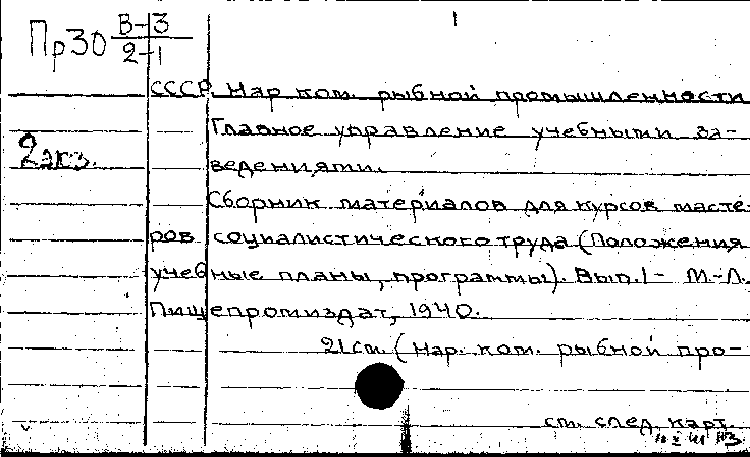 1
Пр30 В-3
2-1
СССР. Нар ком. рыбной промышленности
Главное управление учебными за-
2 экз.
ведениями.
Сборник материалов для курсов масте-
ров социалистического труда (Положения
учебные планы, программы). Вып. I - М.-Л.
Пищепромиздат, 1940.
21 см. (Нар. ком. рыбной про-
см. след. карт.